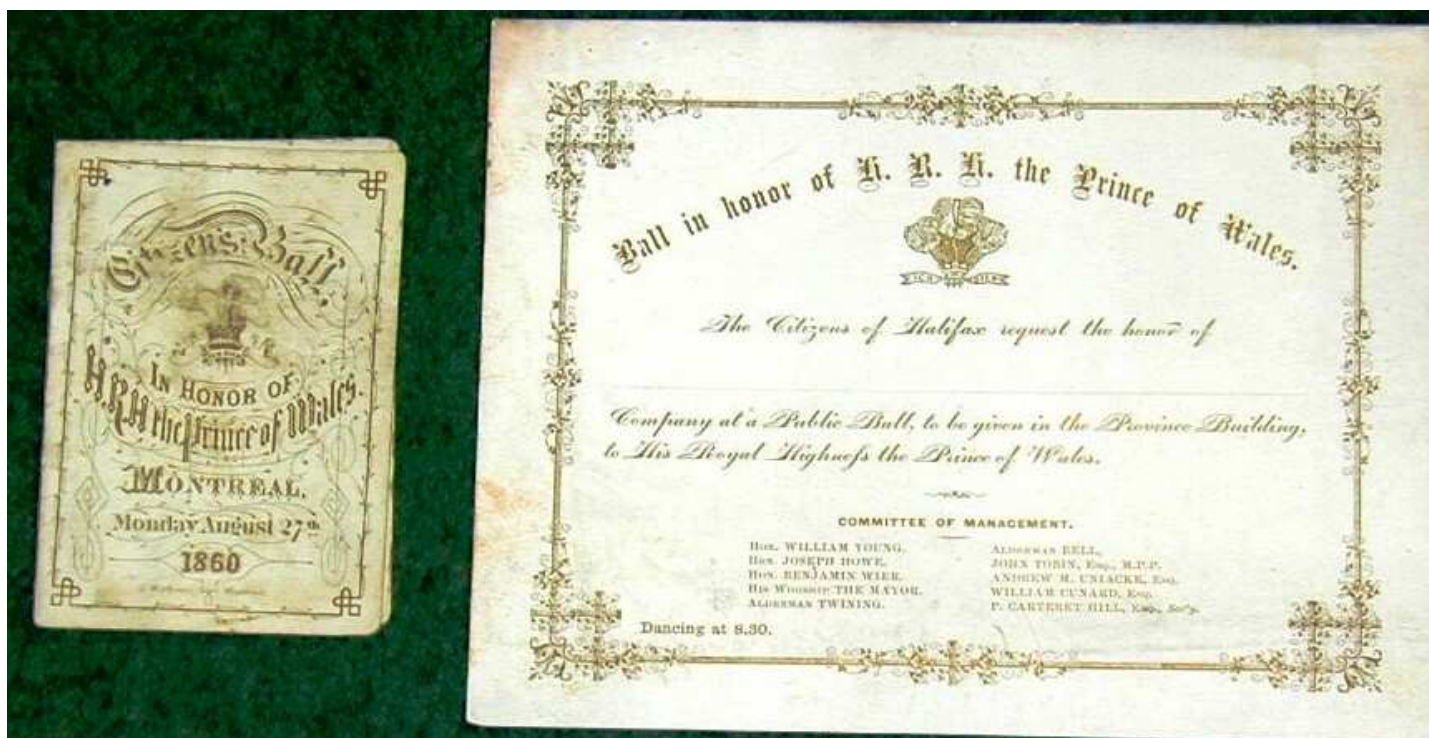 Citizen's Ball.
IN HONOR OF
H.R.H the Prince of Wales.
MONTREAL.
Monday August 27th
1860
Ball in honor of H. R. H. the Prince of Wales.
ICH DIEN
The Citizens of Halifax request the honor of
Company at a Public Ball, to be given in the Province Building,
to His Royal Highness the Prince of Wales.
COMMITTEE OF MANAGEMENT.
HON. WILLIAM YOUNG.
HON. JOSEPH HOWE.
HON. BENJAMIN WIER.
HIS WORSHIP THE MAYOR.
ALDERMAN TWINING.
ALDERMAN BELL,
JOHN TOBIN, ESQ., M.P.P.
ANDREW M. UNIACKE, ESQ.
WILLIAM CUNARD, ESQ.
P. CARTERET HILL, ESQ., Sec'y.
Dancing at 8.30.